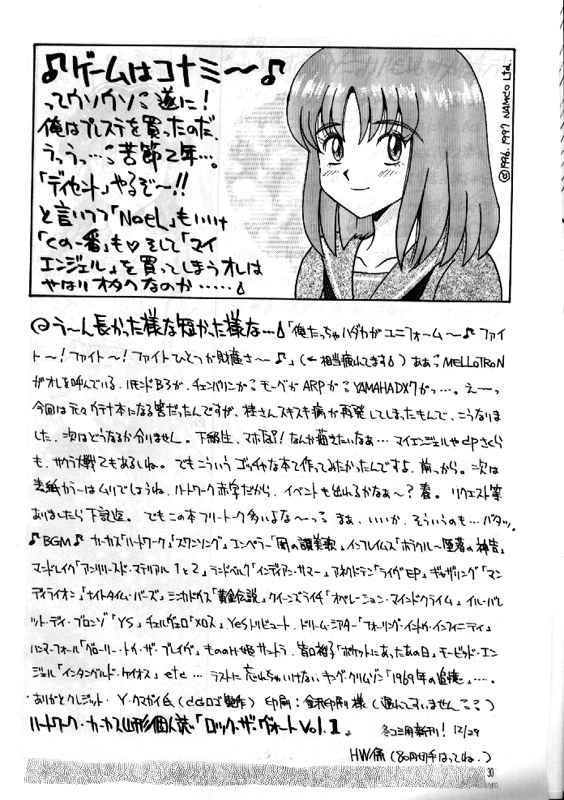 ♪ゲームはコナミ〜♪
ってウソウソ 遂に!
俺はプレステを買ったのだ.
うっうっ…苦節2年….
「ディセント」やるぞ〜!!
と言いつつ「NoeL」もいいけ
「くの一番」も♡そして「マイ
エンジェル」を買ってしまうオレは
やはりオタクなのか……
©1996, 1997 NAMCO Ltd.
@う〜ん長かった様な短かった様な…「俺たっちゃハダカがユニフォーム〜♪ファイ
ト〜!ファイト〜!ファイトひとつが財産さ〜♪」(←相当疲れてます)ああ MELLOTRON
がオレを呼んでいる.ハモンドB3が.チェンバリンが モーグが ARPが YAMAHA DX7がっ….えーっ
今回は元々グラナ本になる筈だったんですが、桂さんスキスキ病が再発してしまったもんで、こうなりま
した.次はどうなるか分りません。下級生、マホ なんか描きたいなぁ…マイエンジェルやetpさくら
も、サクラ大戦てもあるしね。でもこういうゴッチャな本て作ってみたかったんですよ.前っから。次は
表紙カラーはムリでしょうね.ハートワーク赤字だから.イベントも出れるかなぁ〜?春。リクエスト等
ありましたら下記迄。でもこの本フリートーク多いよな〜っ まぁ、いいか.そういうのも…バタッ.
♪BGM♪カーカス「ハートワーク」「スワンソング」エンペラー「闇の讃美歌」インフレイムス「ボラクルー 神告」
マンドレイク「アンリリースド・マテリアル 1と2」ランドベルク「インディアン・サマー」アネクドテン「ライヴEP」ギャザリング「マン
ディライオン」「ナイトタイム・バーズ」ミカドガス「黄金伝説」クイーンズライチ「オペレーション・マインドクライム」イル・バレ
ット・ディ・ブロンゾ「YS」チェルヴェロ「メロス」YESトリビュート.ドリーム・シアター「フォーリング・イントゥ・インフィニティ」
ハンマーフォール「グローリー・トゥ・ザ・ブレイヴ」もののけ姫サントラ.皆口裕子「ポケットにあったあの日」モービッド・エン
ジェル「インタングルド・ケイオス」etc…ラストに忘れちゃいけないキング・クリムゾン「1969年の追憶」….
ありがとクレジット.Y・クマガイ氏(ロゴ製作)印刷:金沢印刷様(遅れてすいません)
ハートワーク・カーカス山形個人誌「ロック・ザ・ヴォート Vol.1」 冬コミ用新刊! 12/29
HW係(80円切手はってね.)
30